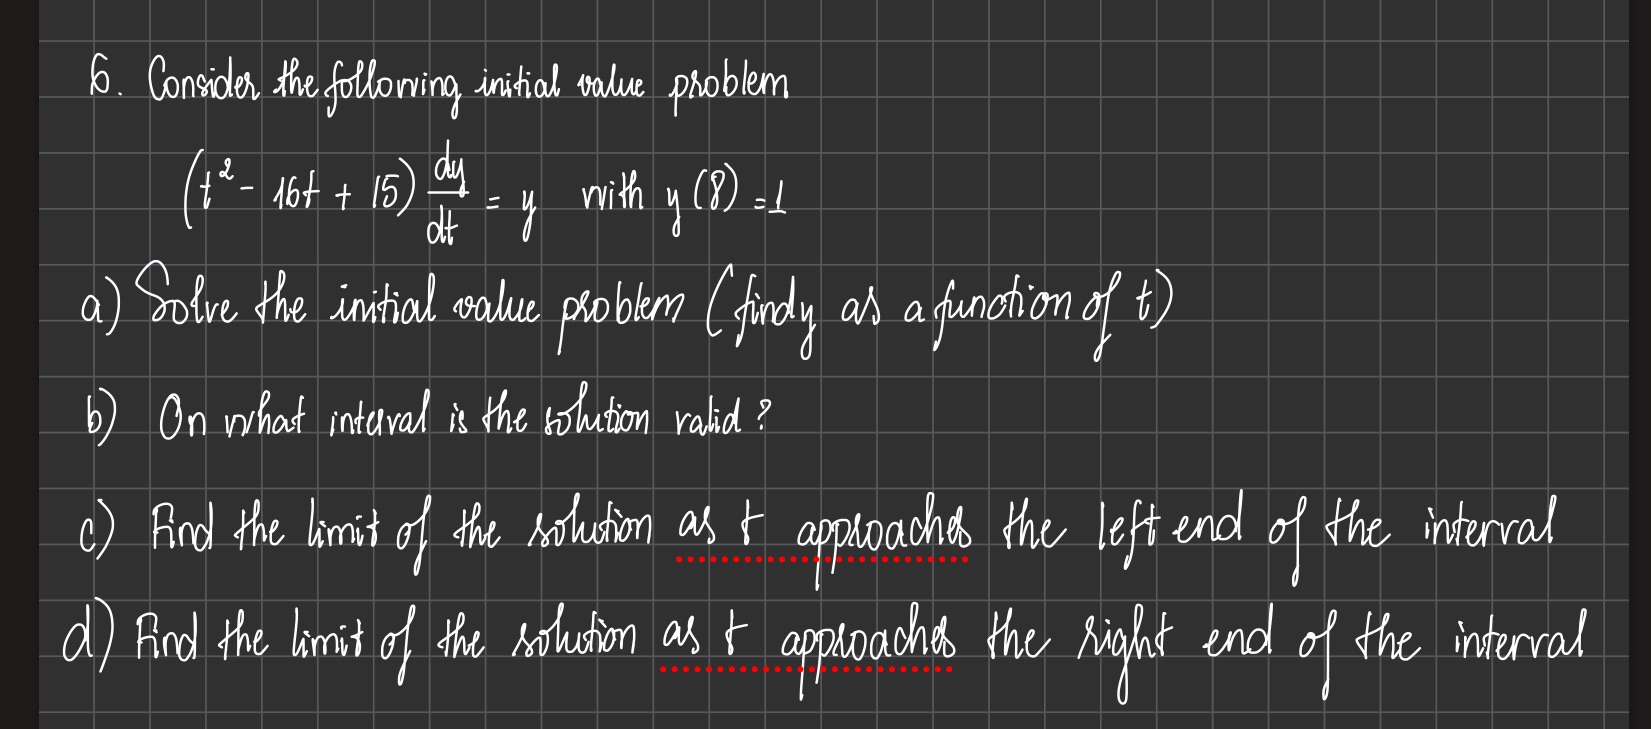 6. Consider the following initial value problem
(t² - 16t + 15) dy/dt = y with y(8) = 1
a) Solve the initial value problem (find y as a function of t)
b) On what interval is the solution valid?
c) Find the limit of the solution as t approaches the left end of the interval
d) Find the limit of the solution as t approaches the right end of the interval